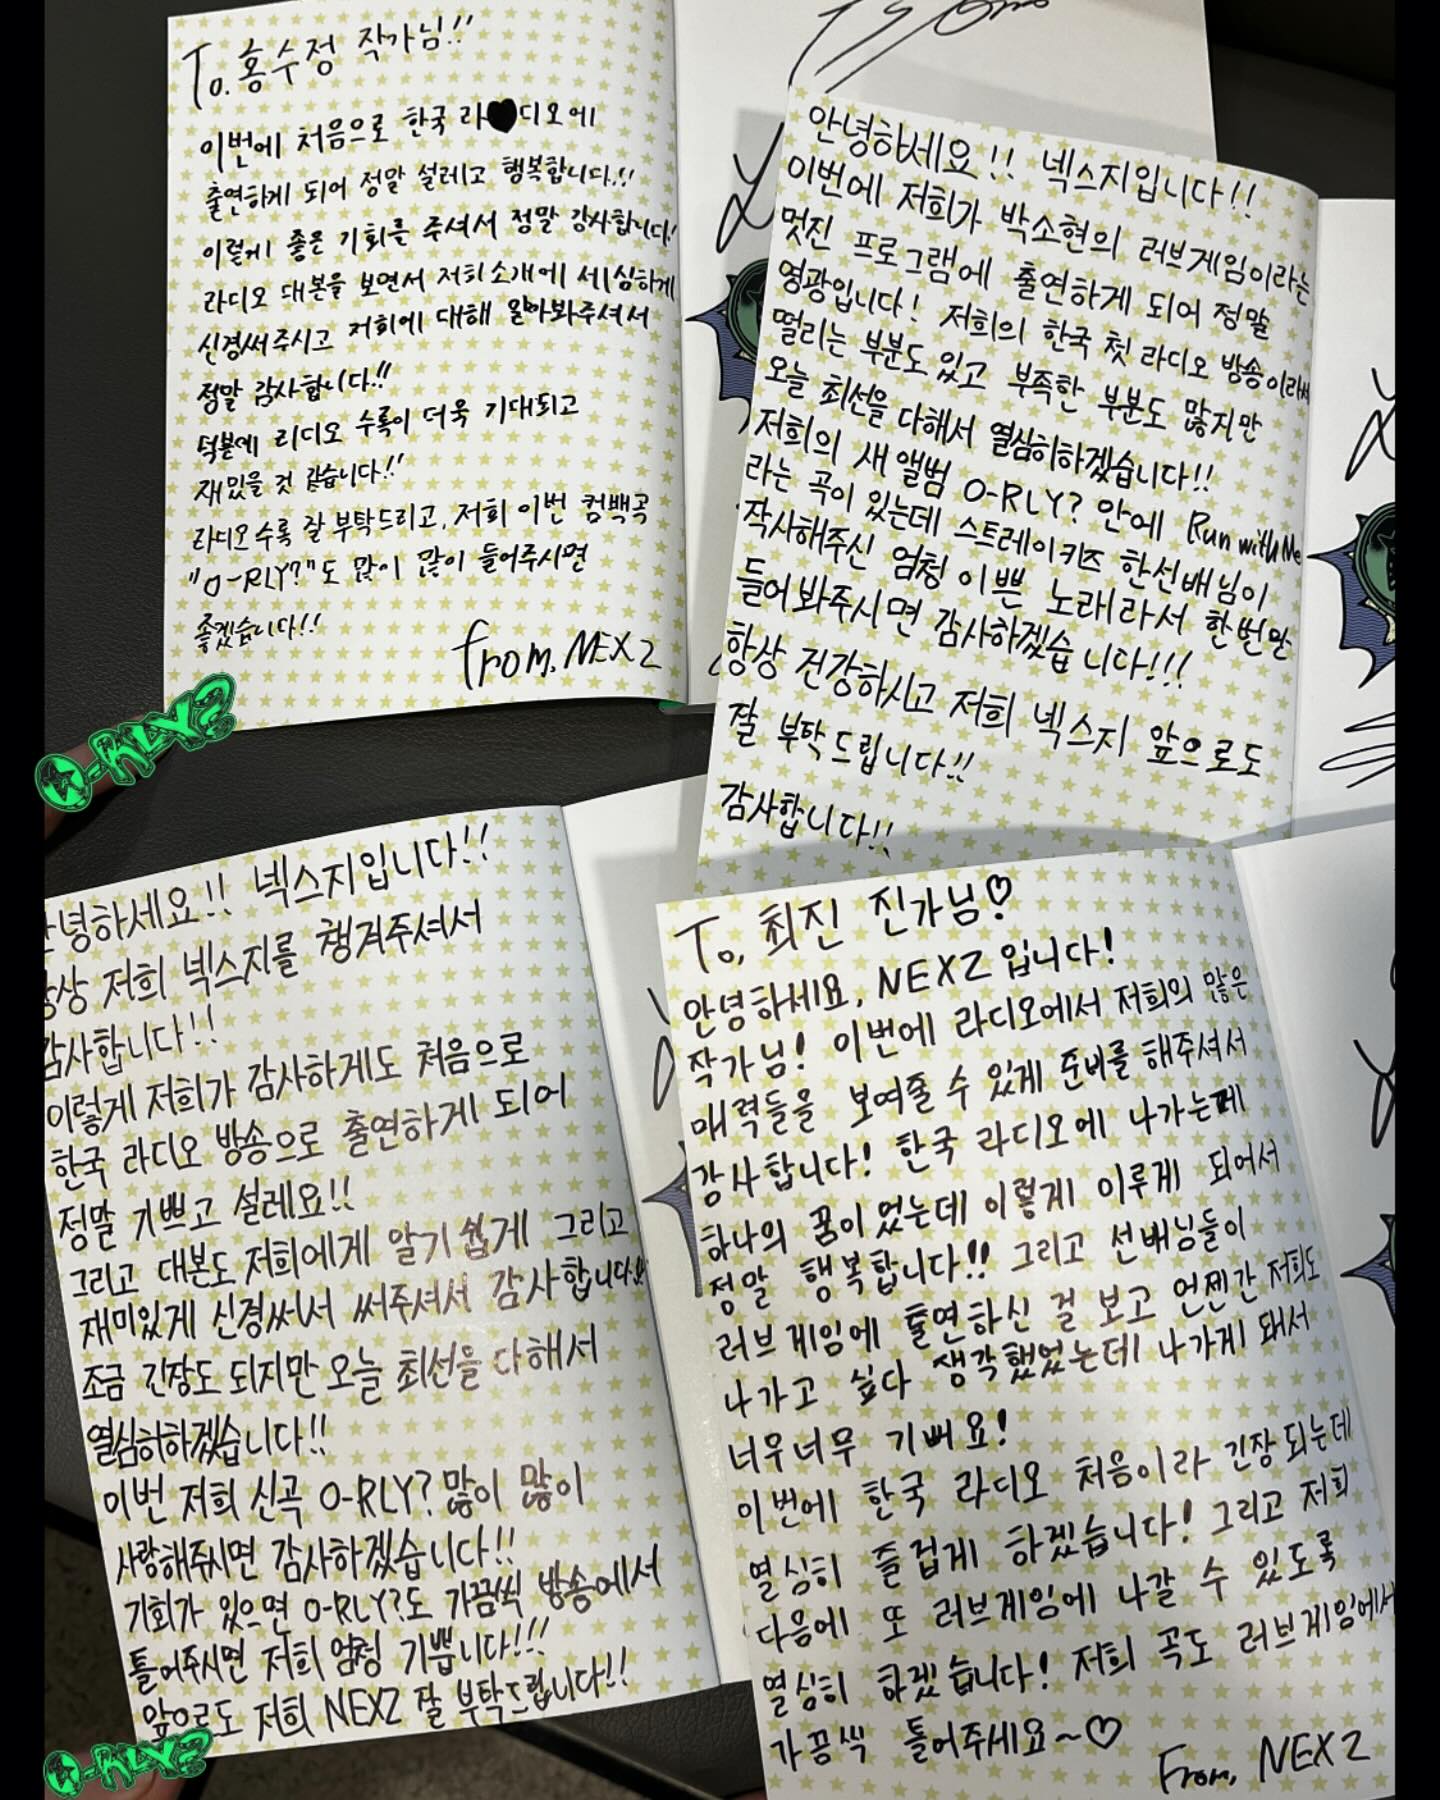 To. 홍수정 작가님!!
이번에 처음으로 한국 라디오에
출연하게 되어 정말 설레고 행복합니다!!
이렇게 좋은 기회를 주셔서 정말 감사합니다!
라디오 대본을 보면서 저희소개에 세심하게
신경써주시고 저희에 대해 알아봐주셔서
정말 감사합니다!!
덕분에 리디오 수록이 더욱 기대되고
재밌을 것 같습니다!!
라디오수록 잘 부탁드리고, 저희 이번 컴백곡
"O-RLY?"도 많이 많이 들어주시면
좋겠습니다!!
from. NEXZ
O-RLY?
안녕하세요!! 넥스지입니다!!
이번에 저희가 박소현의 러브게임이라는
멋진 프로그램에 출연하게 되어 정말
영광입니다! 저희의 한국 첫 라디오 방송이라서
떨리는 부분도 있고 부족한 부분도 많지만
오늘 최선을 다해서 열심히하겠습니다!!
저희의 새 앨범 O-RLY? 안에 Run with Me
라는 곡이 있는데 스트레이키즈 한선배님이
작사해주신 엄청 이쁜 노래라서 한번만
들어봐주시면 감사하겠습니다!!!
항상 건강하시고 저희 넥스지 앞으로도
잘 부탁드립니다!!
감사합니다!!
안녕하세요!! 넥스지입니다!!
항상 저희 넥스지를 챙겨주셔서
감사합니다!!
이렇게 저희가 감사하게도 처음으로
한국 라디오 방송으로 출연하게 되어
정말 기쁘고 설레요!!
그리고 대본도 저희에게 알기 쉽게 그리고
재미있게 신경써서 써주셔서 감사합니다!!
조금 긴장도 되지만 오늘 최선을 다해서
열심히하겠습니다!!
이번 저희 신곡 O-RLY? 많이 많이
사랑해주시면 감사하겠습니다!!
기회가 있으면 O-RLY?도 가끔씩 방송에서
틀어주시면 저희 엄청 기쁩니다!!!
앞으로도 저희 NEXZ 잘 부탁드립니다!!
O-RLY?
To, 최진 진가님♡
안녕하세요, NEXZ입니다!
작가님! 이번에 라디오에서 저희의 많은
매력들을 보여줄 수 있게 준비를 해주셔서
감사합니다! 한국 라디오에 나가는게
하나의 꿈이었는데 이렇게 이루게 되어서
정말 행복합니다!! 그리고 선배님들이
러브게임에 출연하신 걸 보고 언젠간 저희도
나가고 싶다 생각했었는데 나가게 돼서
너무너무 기뻐요!
이번에 한국 라디오 처음이라 긴장되는데
열심히 즐겁게 하겠습니다! 그리고 저희
다음에 또 러브게임에 나갈 수 있도록
열심히 하겠습니다! 저희 곡도 러브게임에서
가끔씩 틀어주세요~♡
From, NEXZ